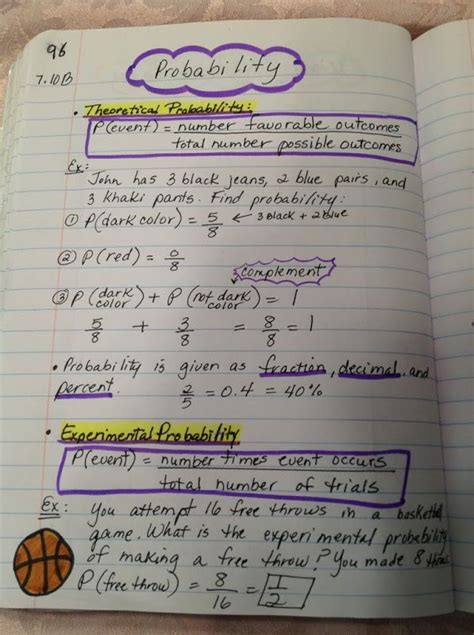 96
7.10B
Probability
• Theoretical Probability:
P(event) = number favorable outcomes
total number possible outcomes
Ex:
John has 3 black jeans, 2 blue pairs, and
3 khaki pants. Find probability:
① P(dark color) = 5/8 ← 3 black + 2 blue
② P(red) = 0/8
complement
③ P(dark color) + P(not dark color) = 1
5/8 + 3/8 = 8/8 = 1
• Probability is given as fraction, decimal, and
percent. 2/5 = 0.4 = 40%
• Experimental Probability
P(event) = number times event occurs
total number of trials
Ex: You attempt 16 free throws in a basketball
game. What is the experimental probability
of making a free throw? You made 8
P(free throw) = 8/16 = 1/2